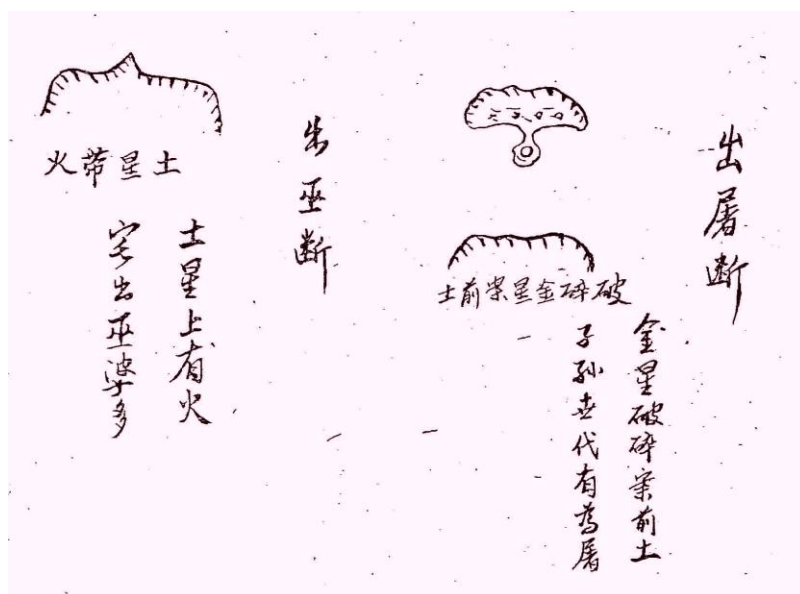 出屠断
破碎金星案前土
金星破碎案前土
子孙世代有為屠
出巫断
土星带火
土星上有火
宅出巫婆多